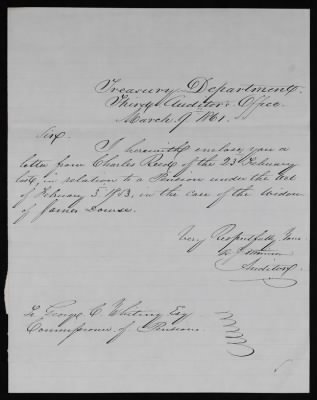 Treasury Department,
Third Auditor's Office.
March 9 1861.
Sir.
I herewith enclose you a
letter from Charles Reed of the 23 February
in relation to a Pension under the act
of February 3. 1853, in the case of the widow
of James
Very Respectfully Your
Auditor
To George C. Whiting Esq
Commissioner of Pensions.